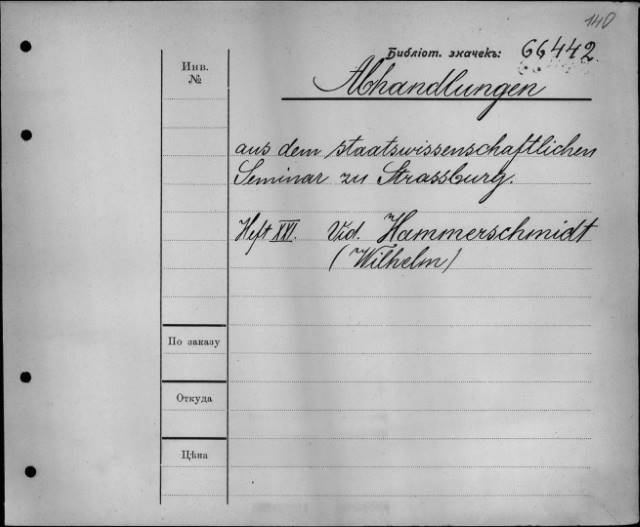 140
Библіот. значекъ: 66442
Инв.
№
Abhandlungen
aus dem staatswissenschaftlichen
Seminar zu Strassburg.
Heft XXI. Vid. Hammerschmidt
(Wilhelm)
По заказу
Откуда
Цѣна